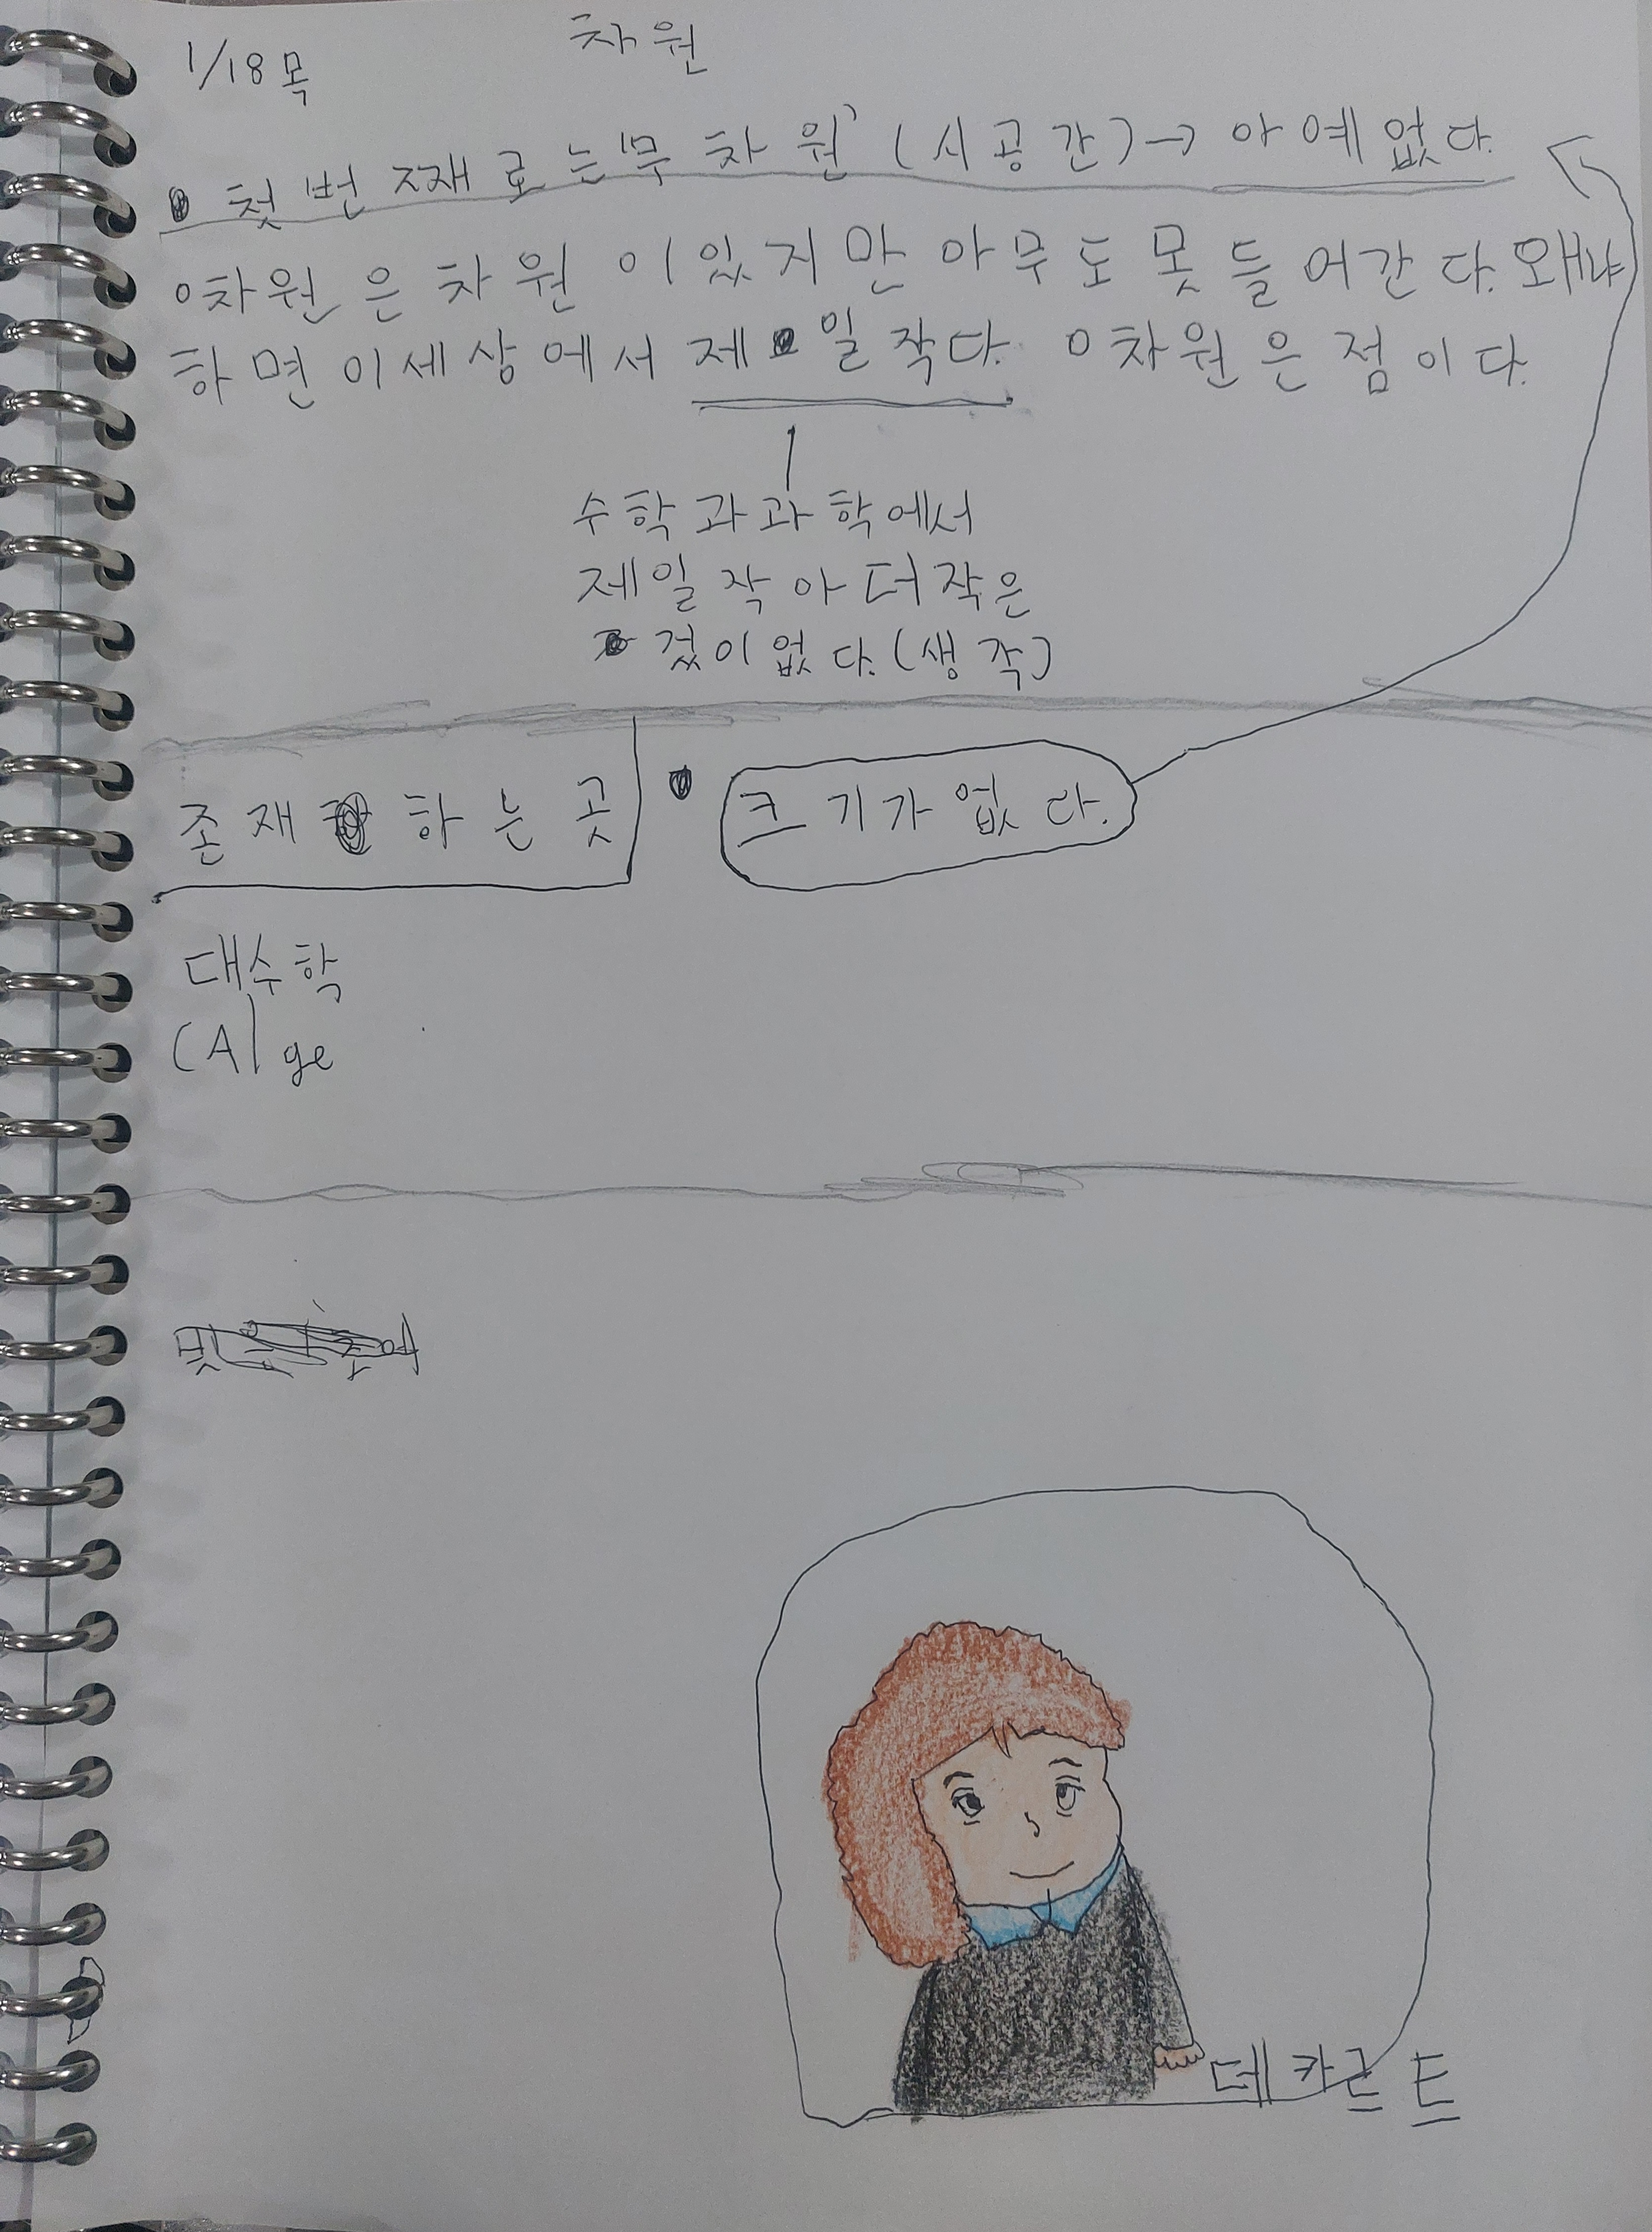 1/18 목
차원
첫 번 째 로 는 '무 차 원' (시 공 간) → 아 예 없 다.
0차원 은 차 원 이 있 지 만 아 무 도 못 들 어 간 다. 왜냐
하 면 이 세 상 에 서 제 일 작 다. 0차 원 은 점 이 다.
수 학 과 과 학 에서
제 일 작 아 더 작 은
것 이 없 다. (생 각)
존 재 하 는 곳
크 기 가 없 다.
대수학
(Alge
데 카 르 트